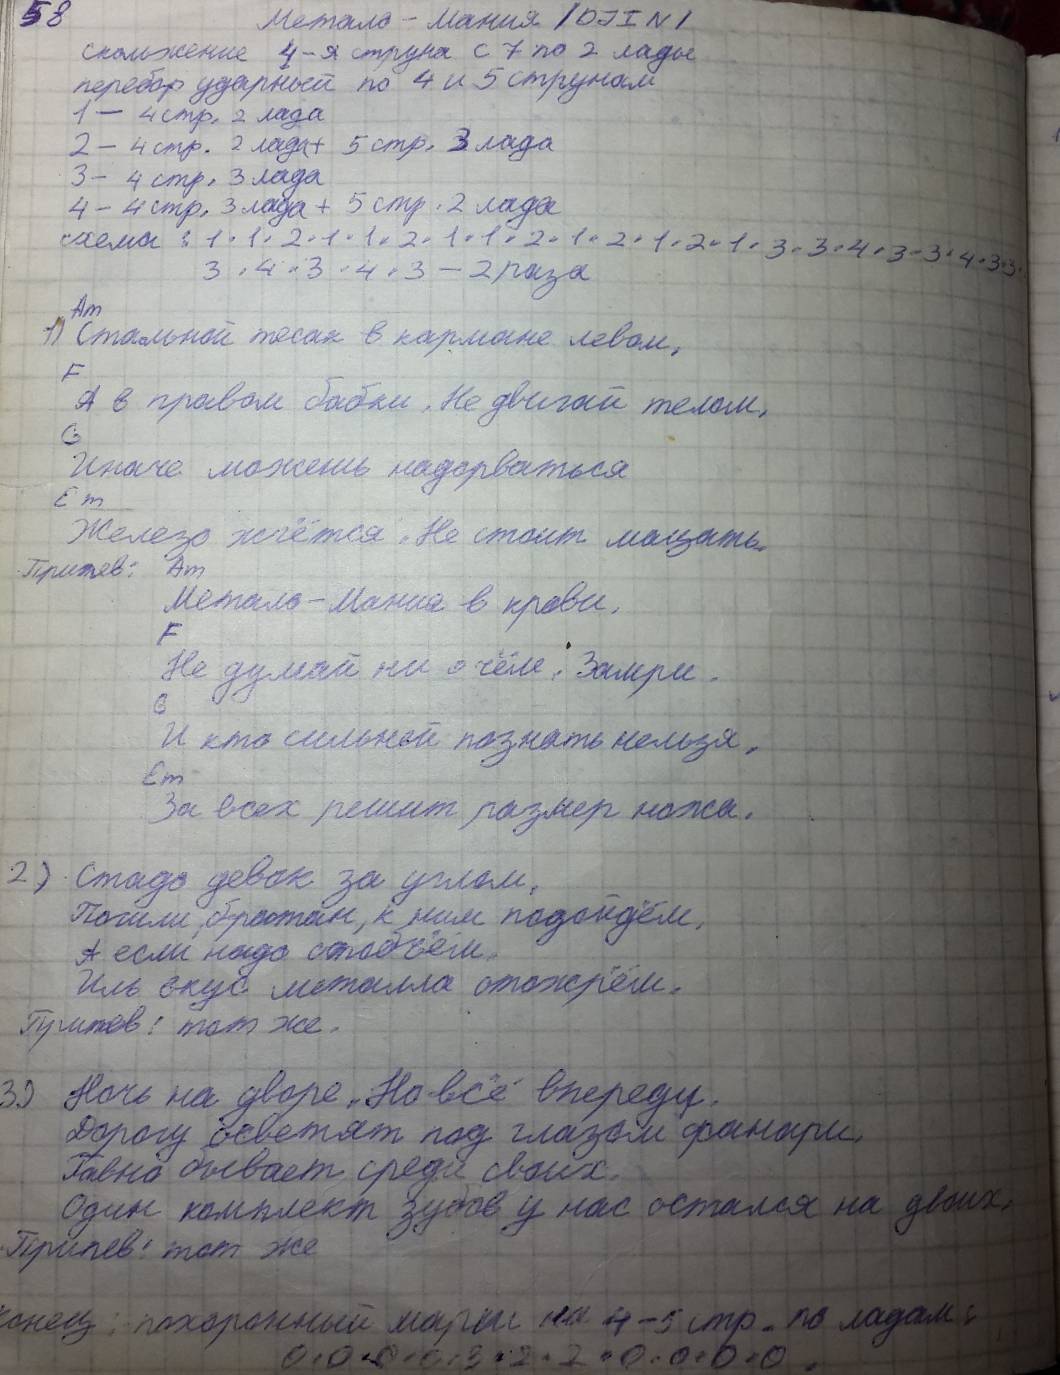 58 Металло-Мания /DJIN/
скольжение 4-я струна с 7 по 2 лады
перебор ударный по 4 и 5 струнам
1 - 4 стр. 2 лада
2 - 4 стр. 2 лада + 5 стр. 3 лада
3 - 4 стр. 3 лада
4 - 4 стр. 3 лада + 5 стр. 2 лада
схема: 1·1·2·1·1·2·1·1·2·1·2·1·2·1·3·3·4·3·3·4·3·3·
3·4·3·4·3 - 2 раза
Am
1) Стальной тесак в кармане левом,
F
А в правом бабки. Не двигай телом,
G
Иначе можешь надорваться
Em
Железо жжётся. Не стоит мацать.
Припев: Am
Металло-Мания в крови.
F
Не думай ни о чём. Замри.
G
И кто сильной познать нельзя.
Em
За всех решит размер ножа.
2) Стадо девок за углом.
Пошли, братан, к ним подойдём,
А если надо отобъём.
Иль вкус металла отожрём.
Припев: тот же.
3) Ночь на дворе. Но всё впереди.
Дорогу осветят под глазом фонари.
Гавно бывает среди своих.
Один комплект зубов у нас остался на двоих.
Припев: тот же
конец: похоронный марш на 4-5 стр. по ладам:
0·0·0·0·3·2·2·0·0·0·0.